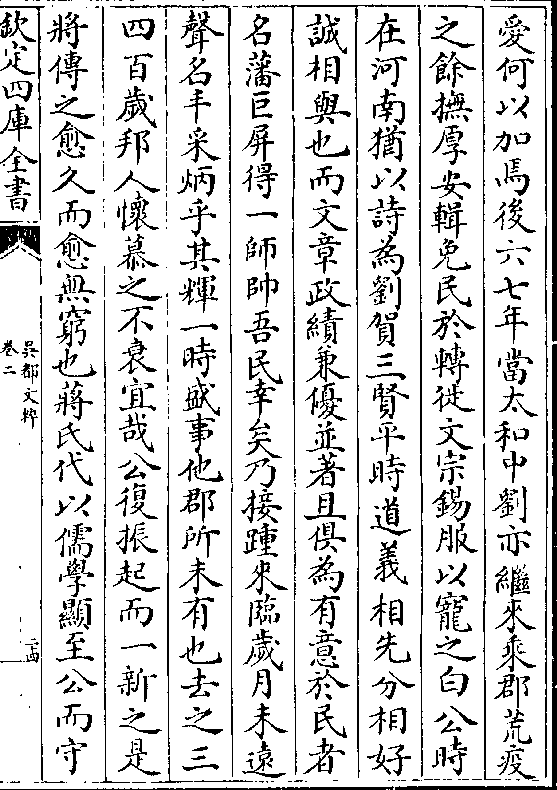 愛何以加焉後六七年當太和中劉亦繼來乘郡荒疫
之餘撫厚安輯免民於轉徙文宗錫服以寵之白公時
在河南猶以詩為劉賀三賢平時道義相先分相好
誠相與也而文章政績兼優並著且俱為有意於民者
名藩巨屏得一師帥吾民幸矣乃接踵來臨歲月未遠
聲名丰采炳乎其輝一時盛事他郡所未有也去之三
四百歲邦人懷慕之不衰宜哉公復振起而一新之是
將傳之愈久而愈無窮也蔣氏代以儒學顯至公而守
欽定四庫全書
吳都文粹
卷二
二四